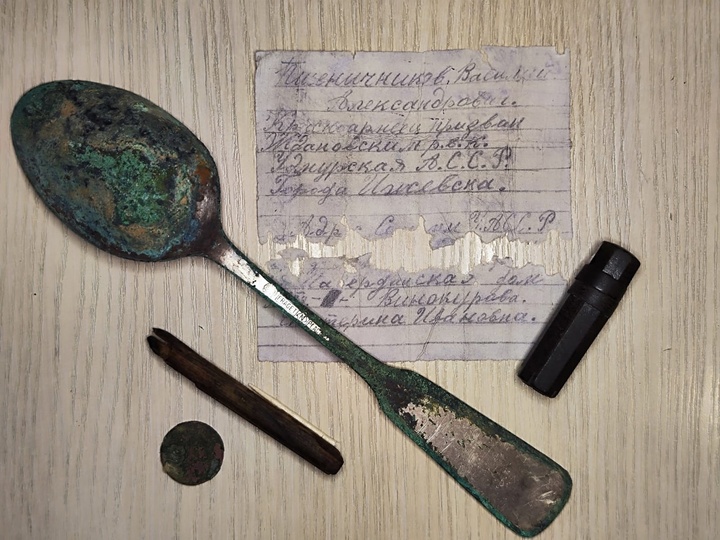 Пшеничников. Василий
Александрович.
Красноармеец призван
Ждановским р.в.к.
Удмурская А.С.С.Р.
Города Ижевска.
У.АС.С.Р
дом
Винокурова.
Ивановна.